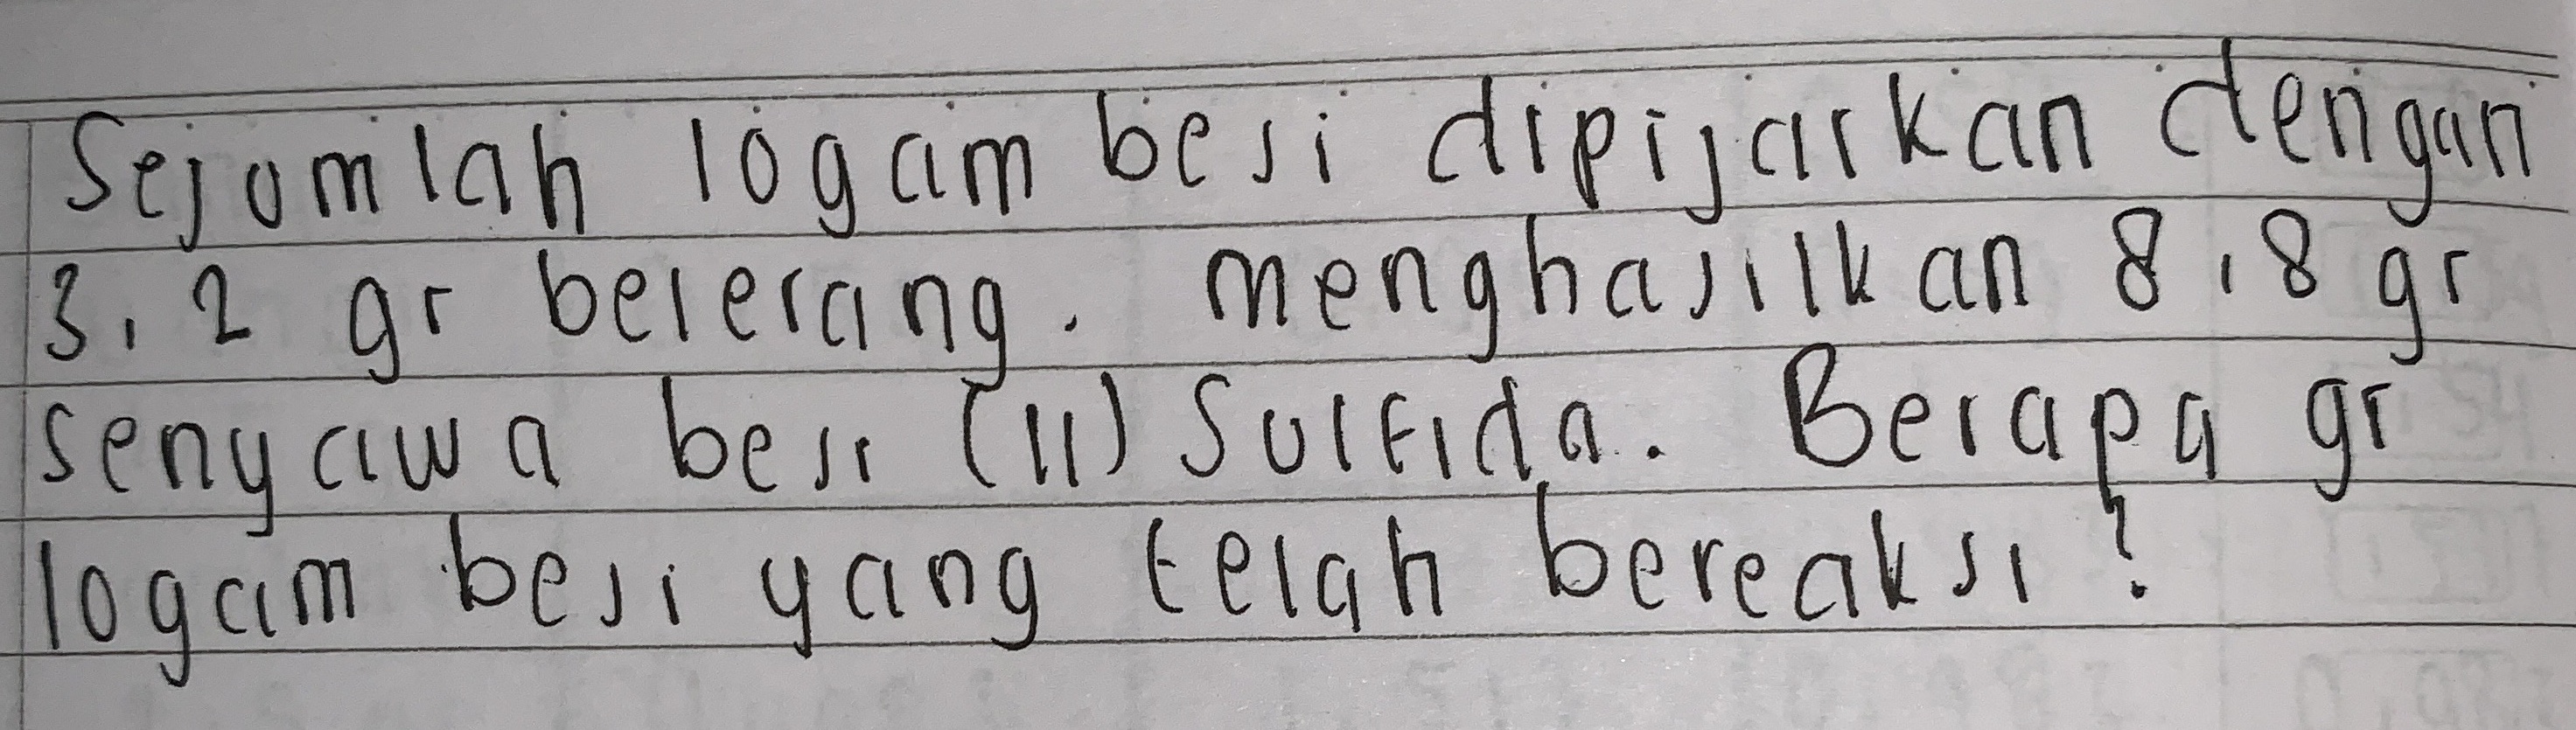 Sejumlah logam besi dipijarkan dengan
3,2 gr belerang. menghasilkan 8,8 gr
senyawa besi (II) Sulfida. Berapa gr
logam besi yang telah bereaksi?